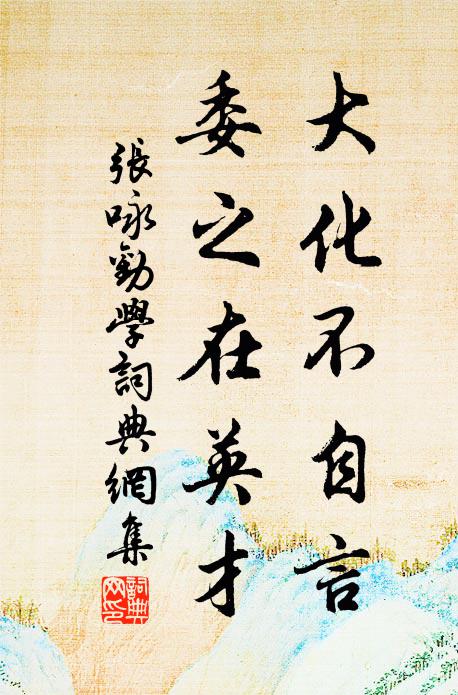 大化不自言
委之在英才
張咏勸學詞典網集
詞典网印